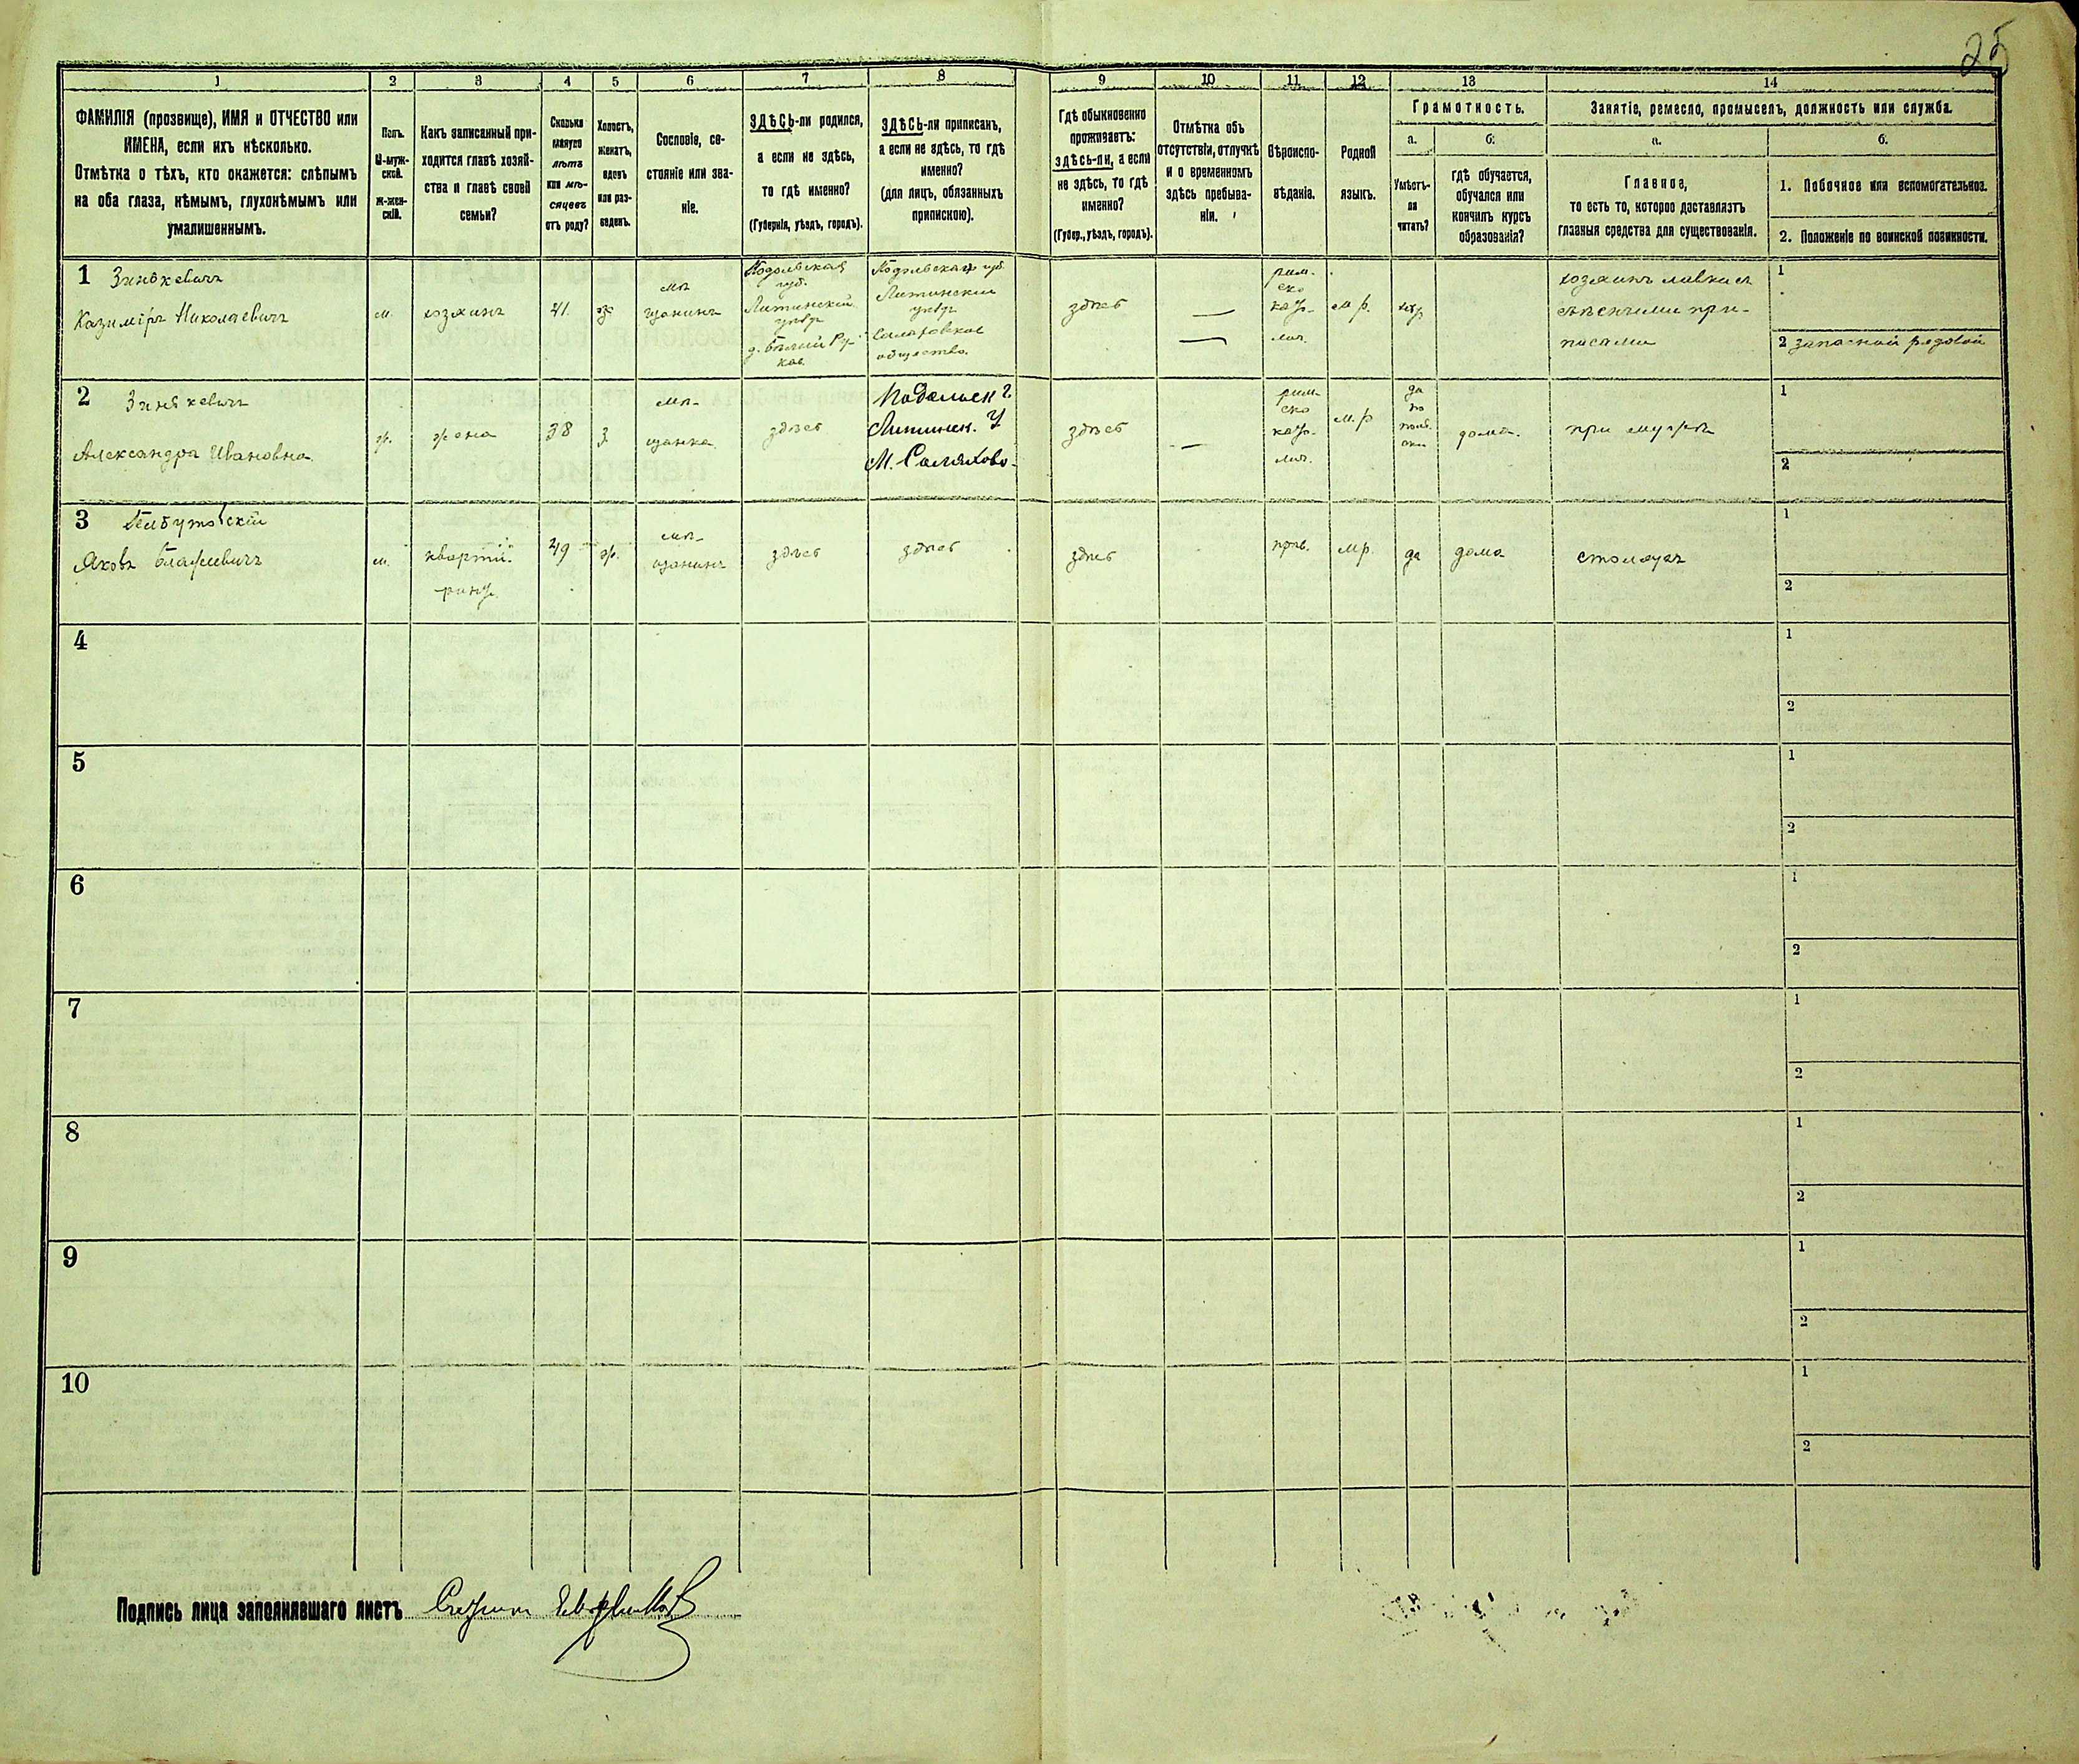 25
1 2 3 4 5 6 7 8 9 10 11 12 13 14
ФАМИЛІЯ (прозвище), ИМЯ и ОТЧЕСТВО или
ИМЕНА, если ихъ нѣсколько.
Отмѣтка о тѣхъ, кто окажется: слѣпымъ
на оба глаза, нѣмымъ, глухонѣмымъ или
умалишеннымъ.
Полъ.
М-муж-
ской.
Ж-жен-
скій.
Какъ записанный при-
ходится главѣ хозяй-
ства и главѣ своей
семьи?
Сколько
минуло
лѣтъ
или мѣ-
сяцевъ
отъ роду?
Холостъ,
женатъ,
вдовъ
или раз-
веденъ.
Сословіе, со-
стояніе или зва-
ніе.
ЗДѢСЬ-ли родился,
а если не здѣсь,
то гдѣ именно?
(Губернія, уѣздъ, городъ).
ЗДѢСЬ-ли приписанъ,
а если не здѣсь, то гдѣ
именно?
(для лицъ, обязанныхъ
припискою).
Гдѣ обыкновенно
проживаетъ:
здѣсь-ли, а если
не здѣсь, то гдѣ
именно?
(Губер., уѣздъ, городъ).
Отмѣтка объ
отсутствіи, отлучкѣ
и о временномъ
здѣсь пребыва-
ніи.
Вѣроиспо-
вѣданіе.
Родной
языкъ.
Грамотность.
а.
Умѣетъ-
ли
читать?
б.
гдѣ обучается,
обучался или
кончилъ курсъ
образованія?
Занятіе, ремесло, промыселъ, должность или служба.
а.
Главное,
то есть то, которое доставляетъ
главныя средства для существованія.
б.
1. Побочное или вспомогательное.
2. Положеніе по воинской повинности.
1 Зинькевичъ
Казиміръ Николаевичъ
м.
хозяинъ
41
ж
мѣ
щанинъ
Подольская
губ.
Литинскій
уѣздъ
Подольская губ.
Литинскій
уѣздъ
общество
здѣсь
рим-
ско
като-
лич.
м р.
хозяинъ лавки съ
съѣстными при-
пасами
1
2 запасной рядовой
2 Зинькевичъ
Александра Ивановна
ж.
жена
38
з
мѣ-
щанка
здѣсь
Подольск г.
Литинск. У
М.
здѣсь
рим-
ско
като-
лич.
м.р
да
по
дома.
при мужѣ
1
2
3
Яковъ
м.
кварти-
рантъ
49
ж.
мѣ-
щанинъ
здѣсь
здѣсь
здѣсь
прав.
м р.
да
дома
столяръ
1
2
4
1
2
5
1
2
6
1
2
7
1
2
8
1
2
9
1
2
10
1
2
Подпись лица заполнявшаго листъ